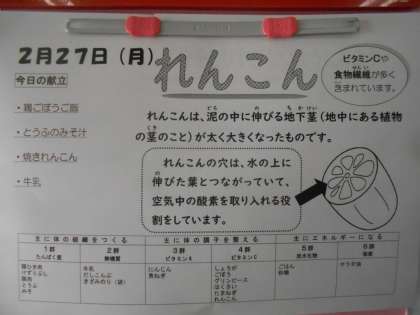 2月27日(月)
れんこん
ビタミンCや
食物繊維が多く
含まれています。
今日の献立
・鶏ごぼうご飯
・とうふのみそ汁
・焼きれんこん
・牛乳
れんこんは、泥の中に伸びる地下茎(地中にある植物
の茎のこと)が太く大きくなったものです。
れんこんの穴は、水の上に
伸びた葉とつながっていて、
空気中の酸素を取り入れる役
割をしています。
主に体の組織をつくる 主に体の調子を整える 主にエネルギーになる
1群 2群 3群 4群 5群 6群
たんぱく質 無機質 ビタミンA ビタミンC 炭水化物 脂質
鶏ひき肉 牛乳 にんじん しょうが ごはん サラダ油
けずりぶし だしこんぶ 葉ねぎ ごぼう 砂糖
豚肉 きざみのり(袋) グリンピース
とうふ はくさい
みそ たまねぎ
れんこん